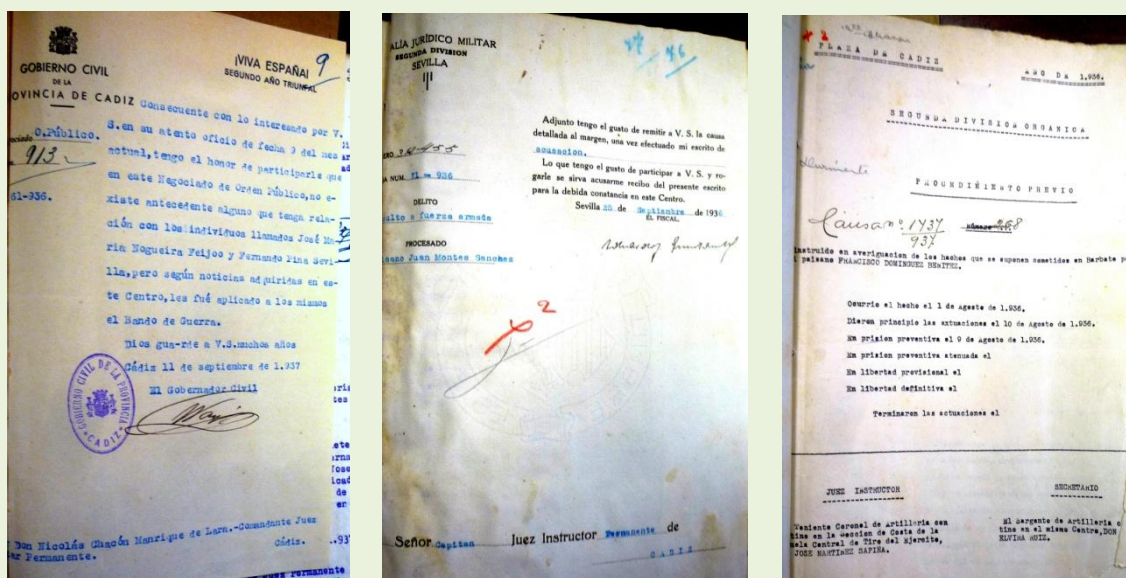 GOBIERNO CIVIL
DE LA
OVINCIA DE CADIZ
¡VIVA ESPAÑA!
SEGUNDO AÑO TRIUNFAL
9
O.Público.
913
61-936.
Consecuente con lo interesado por V.
S.en su atento oficio de fecha 9 del mes
actual,tengo el honor de participarle que
en este Negociado de Orden Público,no e-
xiste antecedente alguno que tenga rela-
ción con los individuos llamados José Ma-
ria Nogueira Feijoo y Fernando Pina Sevi-
lla,pero según noticias adquiridas en es-
te Centro,les fué aplicado a los mismos
el Bando de Guerra.
Dios gua-rde a V.S.muchos años
Cádiz 11 de septiembre de 1.937
El Gobernador Civil
GOBIERNO CIVIL DE LA PROVINCIA
CADIZ
Don Nicolás Chacón Manrique de Lara.-Comandante Juez
tar Permanente.
Cádiz.
ALÍA JURÍDICO MILITAR
SEGUNDA DIVISION
SEVILLA
NUM. 71 de 936
DELITO
sulto a fuerza armada
PROCESADO
Juan Montes Sanchez
Adjunto tengo el gusto de remitir a V. S. la causa
detallada al margen, una vez efectuado mi escrito de
acusacion.
Lo que tengo el gusto de participar a V. S. y ro-
garle se sirva acusarme recibo del presente escrito
para la debida constancia en este Centro.
Sevilla 25 de Septiembre de 1936
EL FISCAL.
2
Señor Capitan Juez Instructor Permanente de
CADIZ
2
PLAZA DE CADIZ
AÑO DE 1.936.
SEGUNDA DIVISION ORGANICA
PROCEDIMIENTO PREVIO
Causa nº 1437
937
instruido en averiguacion de los hechos que se suponen cometidos en Barbate p
paisano FRANCISCO DOMINGUEZ BENITEZ.
Ocurrio el hecho el 1 de Agosto de 1.936.
Dieron principio las actuaciones el 10 de Agosto de 1.936.
En prision preventiva el 9 de Agosto de 1.936.
En prision preventiva atenuada el
En libertad provisional el
En libertad definitiva el
Terminaron las actuaciones el
JUEZ INSTRUCTOR
SECRETARIO
Teniente Coronel de Artilleria con
tino en la Seccion de Costa de la
uela Central de Tiro del Ejercito,
JOSE MARTINEZ SAPIÑA.
El Sargento de Artilleria c
tino en el mismo Centro,DON
ELVIRA RUIZ.